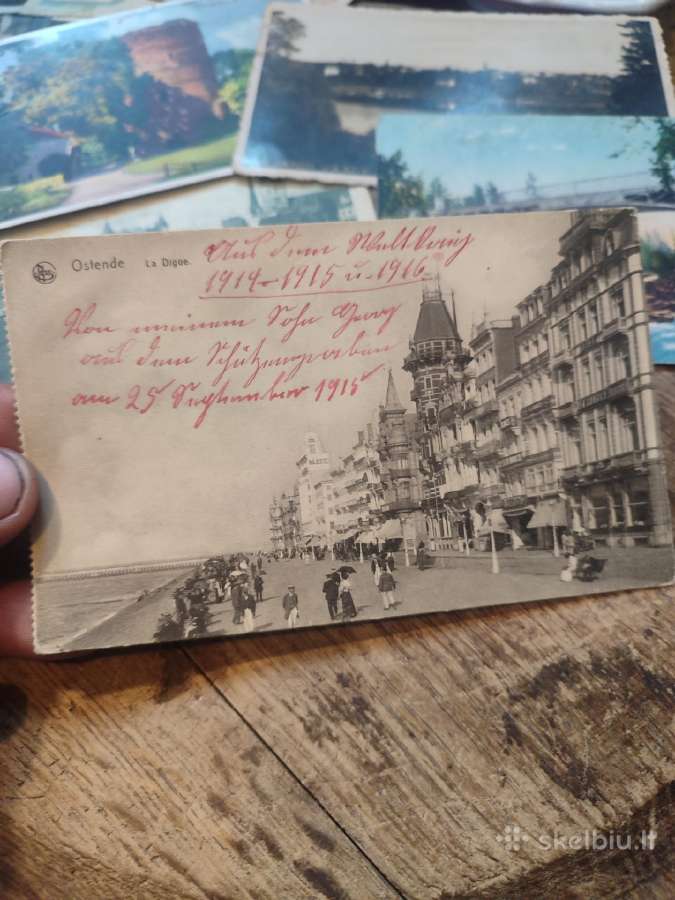 Ostende La Digue.
Aus dem Weltkrieg
1914-1915 u. 1916
Von meinem Sohn Georg
aus dem Schützengraben
am 25 September 1915
skelbiu.lt